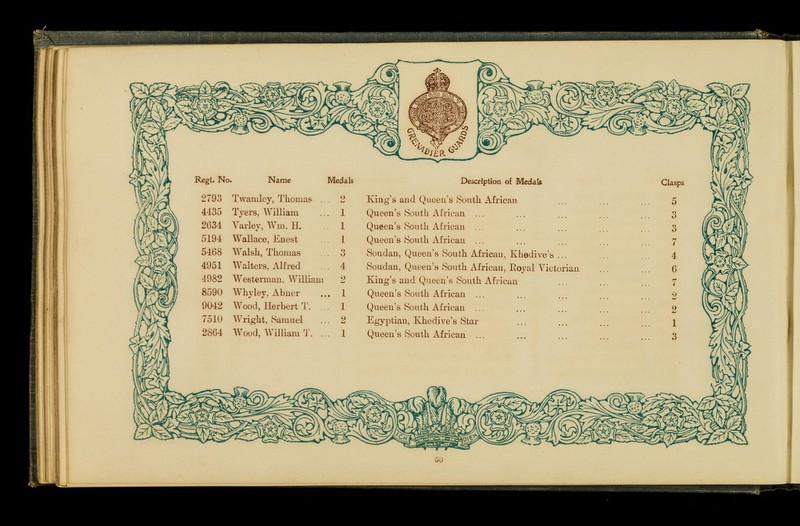 GRENADIER GUARDS
Regt. No. Name Medals Description of Medals Clasps
2793 Twamley, Thomas ... 2 King's and Queen's South African ... ... ... 5
4435 Tyers, William ... 1 Queen's South African ... ... ... ... ... 3
2634 Varley, Wm. H. 1 Queen's South African ... ... ... ... ... 3
5194 Wallace, Enest 1 Queen's South African ... ... ... ... ... 7
5468 Walsh, Thomas ... 3 Soudan, Queen's South African, Khedive's ... ... ... 4
4951 Walters, Alfred ... 4 Soudan, Queen's South African, Royal Victorian ... ... 6
4982 Westerman, William 2 King's and Queen's South African ... ... ... 7
8590 Whyley, Abner ... 1 Queen's South African ... ... ... ... ... 2
9042 Wood, Herbert T. ... 1 Queen's South African ... ... ... ... ... 2
7510 Wright, Samuel ... 2 Egyptian, Khedive's Star ... ... ... ... 1
2864 Wood, William T. ... 1 Queen's South African ... ... ... ... ... 3
50